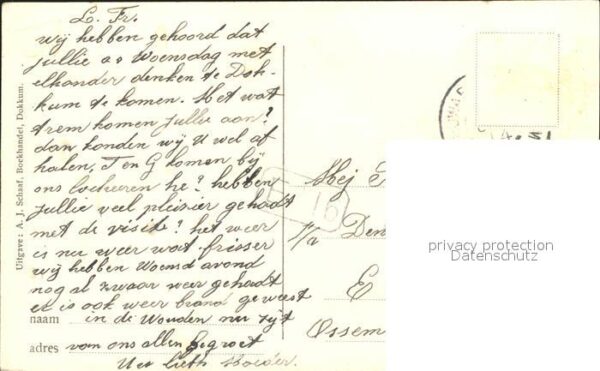 L. Fr.
wij hebben gehoord dat
jullie a s Woensdag met
elkander denken te Dok-
kum te komen. Met wat
trem komen jullie aan?
dan konden wij U wel af
halen, T en G komen bij
ons locheeren he? hebben
jullie veel pleisier gehadt
met de visite? het weer
is nu weer wat frisser
wij hebben Woensd avond
nog al zwaar weer gehadt
er is ook weer brand geweest
naam in de Wouden nu zijt
adres van ons allen gegroet
Uw Liefh Moeder.
Uitgave: A. J. Schaaf, Boekhandel, Dokkum.
Mej
p/a Den
E
Ossem
privacy protection
Datenschutz